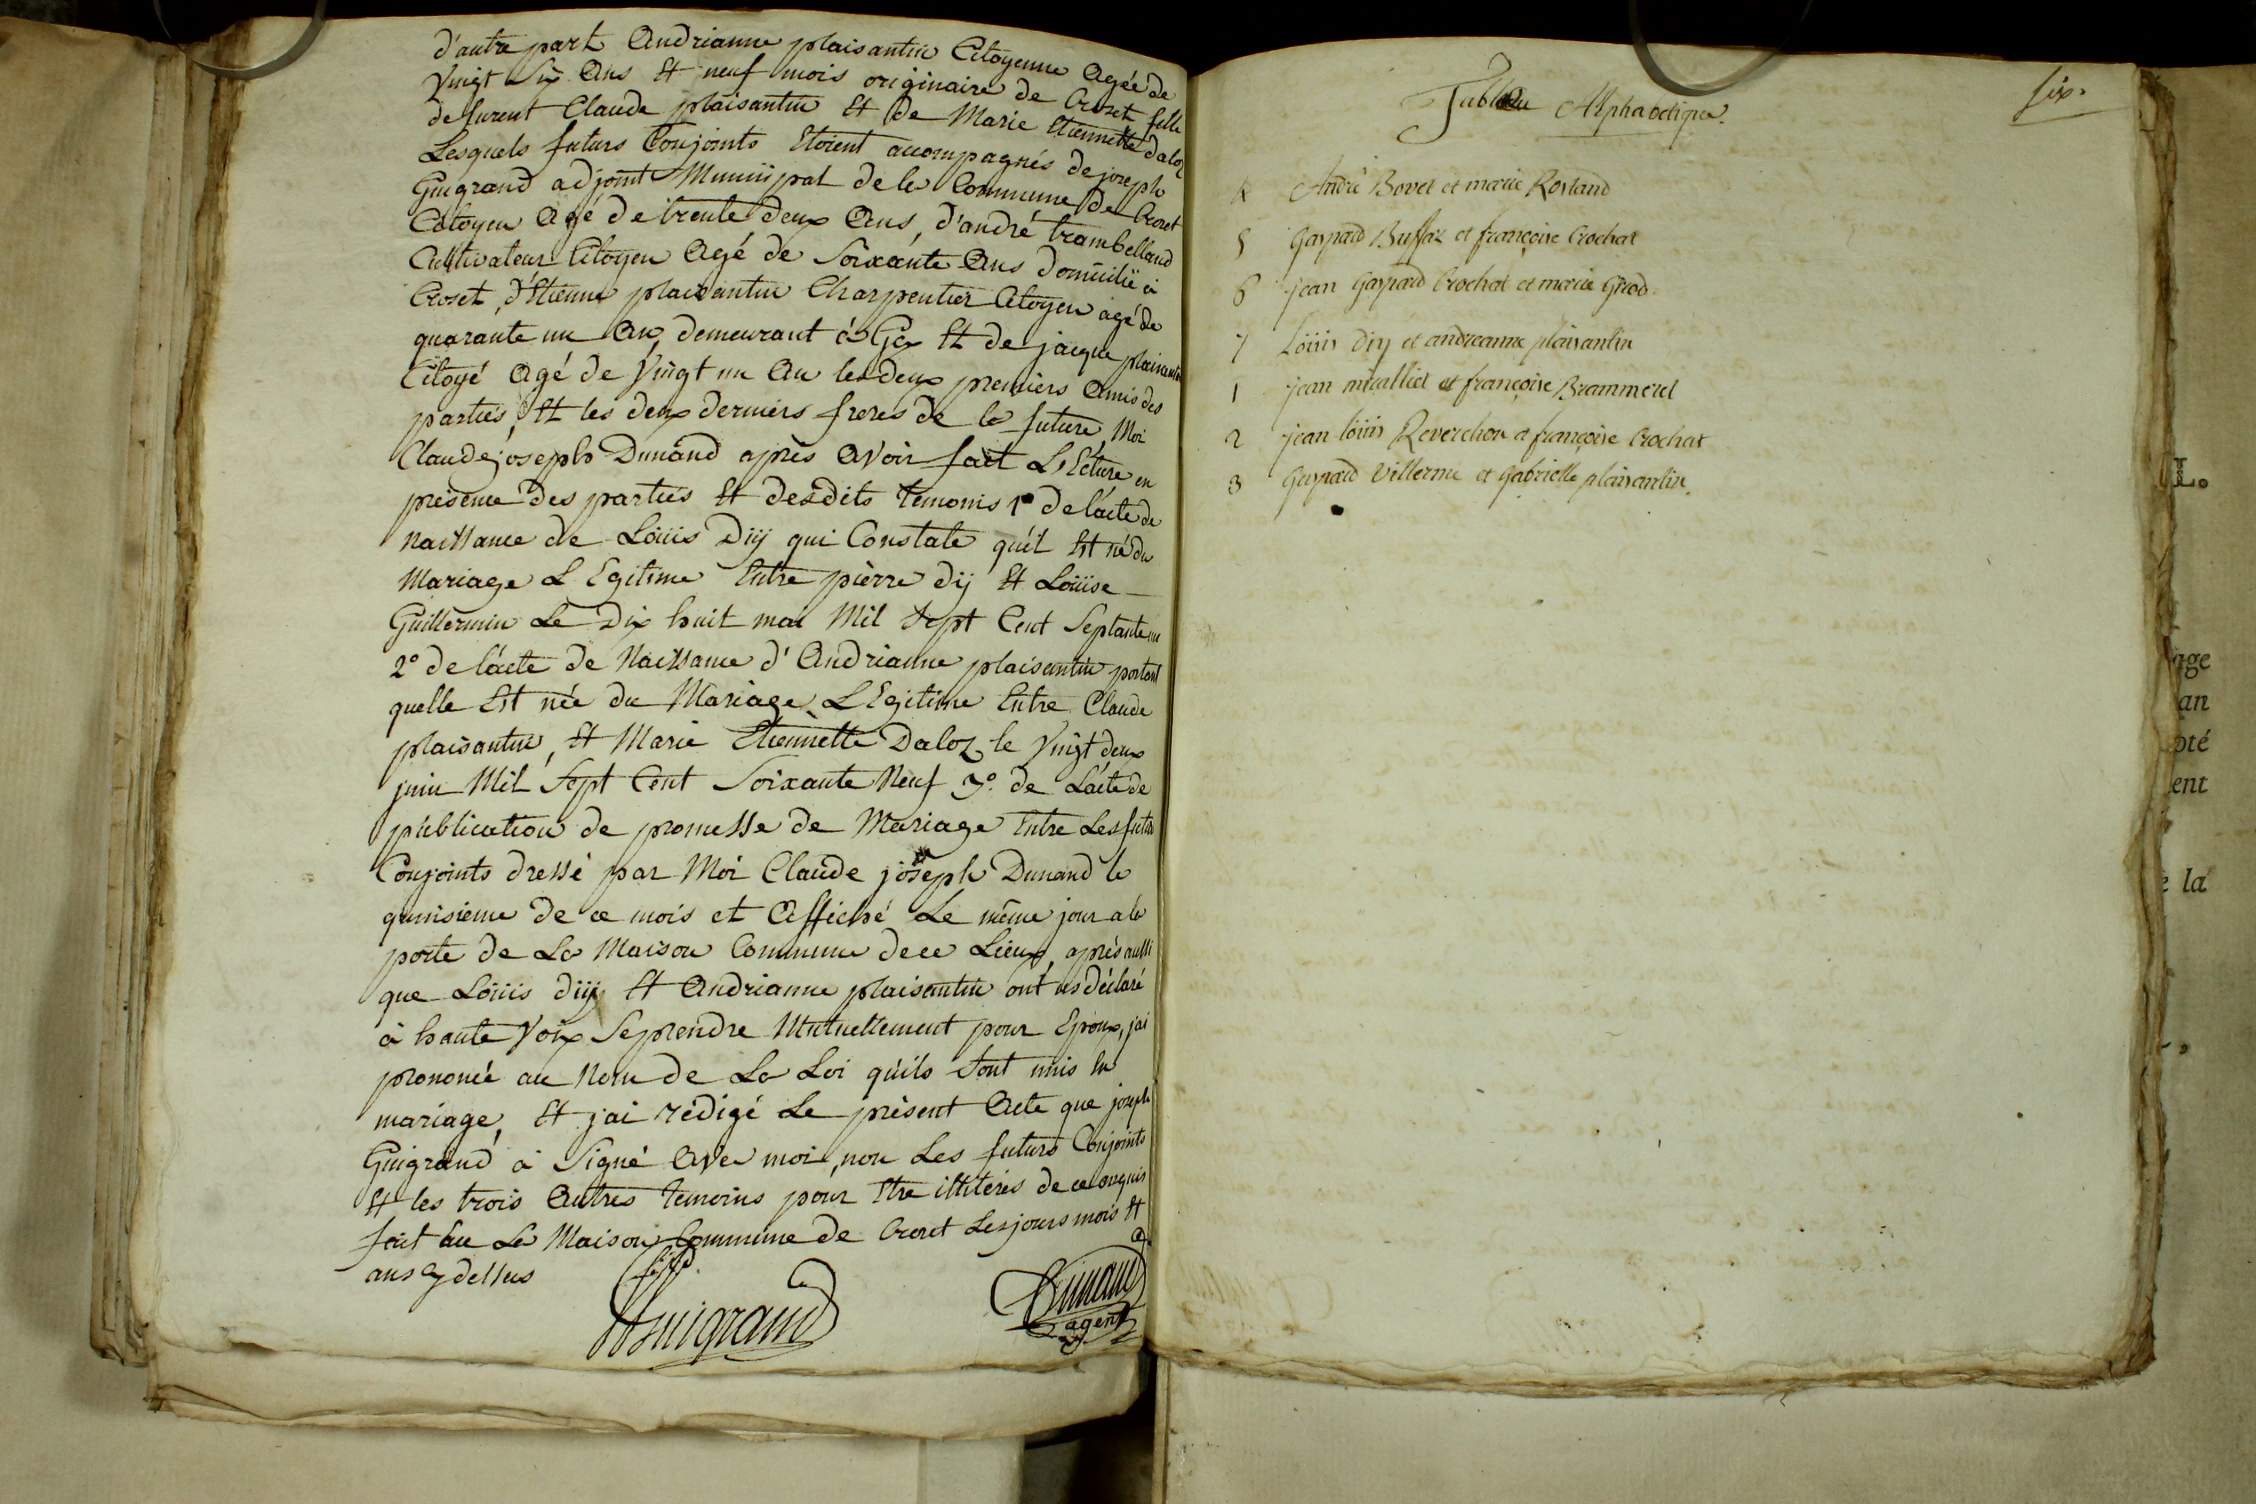 d'autre part Andrianne plaisantin Citoyenne Agée de
Vingt Six Ans Et neuf mois originaire de Crozet fille
defurent Claude plaisantin Et de Marie Etiennette Daloz
Lesquels futurs Conjoints Etoient acompagnés de joseph
Guigrand adjoint Municipal de la Commune de Crozet
Citoyen Agé de trente deux Ans, d'andré trambelland
Cultivateur Citoyen Agé de Soixante Ans Domicilié à
Crozet, d'Etienne plaisantin Charpentier Citoyen agé de
quarante un An, demeurant à Gex Et de jacque plaisantin
Citoyé Agé de Vingt un An les deux premiers Amis des
parties, Et les deux derniers freres de la future, Moi
Claude joseph Dunand après avoir fait L'Ecture en
présence des parties Et desdits temoins 1° de l'acte de
Naissance de Loüis Dijj qui Constate qu'il Est né du
Mariage L'Egitime Entre pièrre Dij Et Loüise
Guillermin Le Dix huit mai Mil Sept Cent Septante un
2° de l'acte de Naissance d'Andrianne plaisantin portant
quelle Est née du Mariage L'Egitime Entre Claude
plaisantin, Et Marie Etiennette Daloz le Vingt deux
juin Mil Sept Cent Soixante Neuf 3° de L'acte de
publication de promesse de Mariage Entre Les futurs
Conjoints dressé par Moi Claude joseph Dunand le
quinsieme de ce mois et Affiché Le même jour a la
porte de La Maison Commune de ce Lieux, après aussi
que Loüis dijj Et Andrianne plaisantin ont déclaré
à haute Voix Seprendre Mutuellement pour Epoux, j'ai
prononcé au Nom de La Loi qu'ils Sont unis en
mariage, Et j'ai rédigé Le présent Acte que joseph
Guigrand à Signé Avec moi, non Les futurs Conjoints
Et les trois Autres temoins pour Etre illitérés de ce enquis
fait En La Maison Commune de Crozet Les jours mois Et
ans cy dessus
Guigrand
Dunand
agent
six.
Tableau Alphabetique.
4 André Bovet et marie Rostand
5 Gaspard Buffaz et françoise Crochat
6 jean Gaspard Crochat et marie Grod
7 Loüis Dijj et andreanne plaisantin
1 jean micalliet et françoise Brammerel
2 jean loüis Reverchon et françoise Crochat
3 Gaspard Villerme et Gabrielle plaisantin.
L.
age
an
pté
ent
la